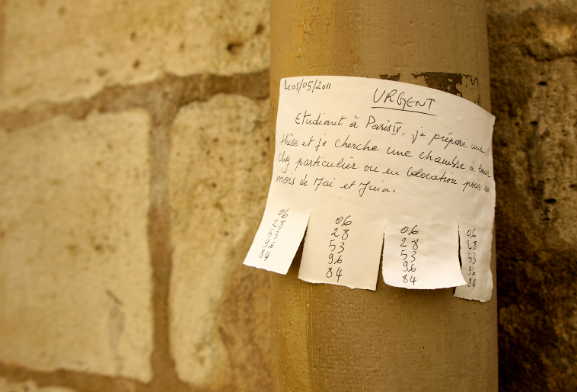 Le 05/05/2011
URGENT
Etudiant à Paris IV, je prépare une
thèse et je cherche une chambre à louer
chez particulier ou en colocation pour les
mois de Mai et Juin.
06
28
53
96
84
06
28
53
96
84
06
28
53
96
84
06
28
53
96
84